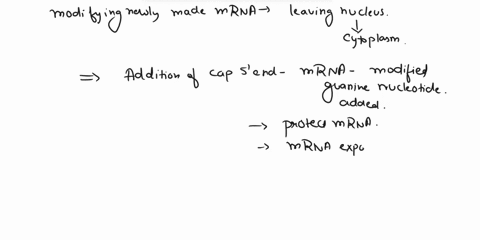 modifying newly made mRNA → leaving nucleus.
↓
Cytoplasm.
⇒ Addition of cap 5' end - mRNA - modified
guanine nucleotide.
added.
→ protect mRNA.
→ mRNA expo